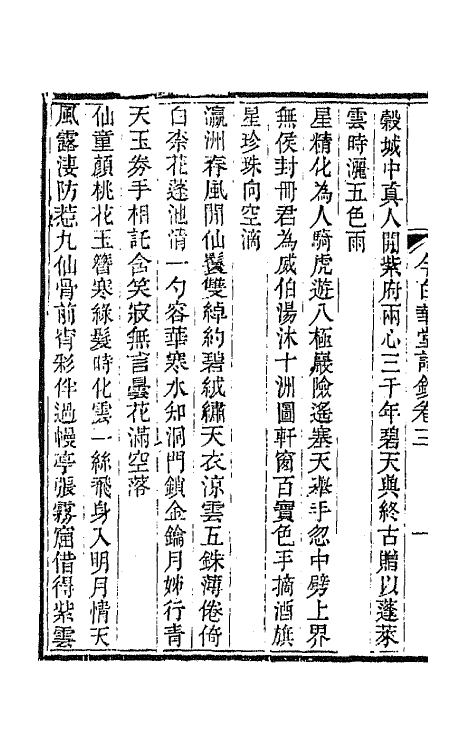 今白華堂詩錄卷三
一
穀城中真人開紫府兩心三千年碧天與終古贈以蓬萊
雲時灑五色雨
星精化為人騎虎遊八極嚴險遙塞天舉手忽中劈上界
無侯封冊君為威伯湯沐十洲圖軒窗百寶色手摘酒旗
星珍珠向空滴
瀛洲春風閒仙鬟雙綽約碧絨繡天衣涼雲五銖薄倦倚
白柰花蓬池清一勺容華寒水知洞門鎖金鑰月姊行青
天玉劵手相託含笑寂無言曇花滿空落
仙童顏桃花玉簪寒綠髮時化雲一絲飛身入明月情天
風露淒防惹九仙骨前宵彩伴過慢亭張霧窟借得紫雲